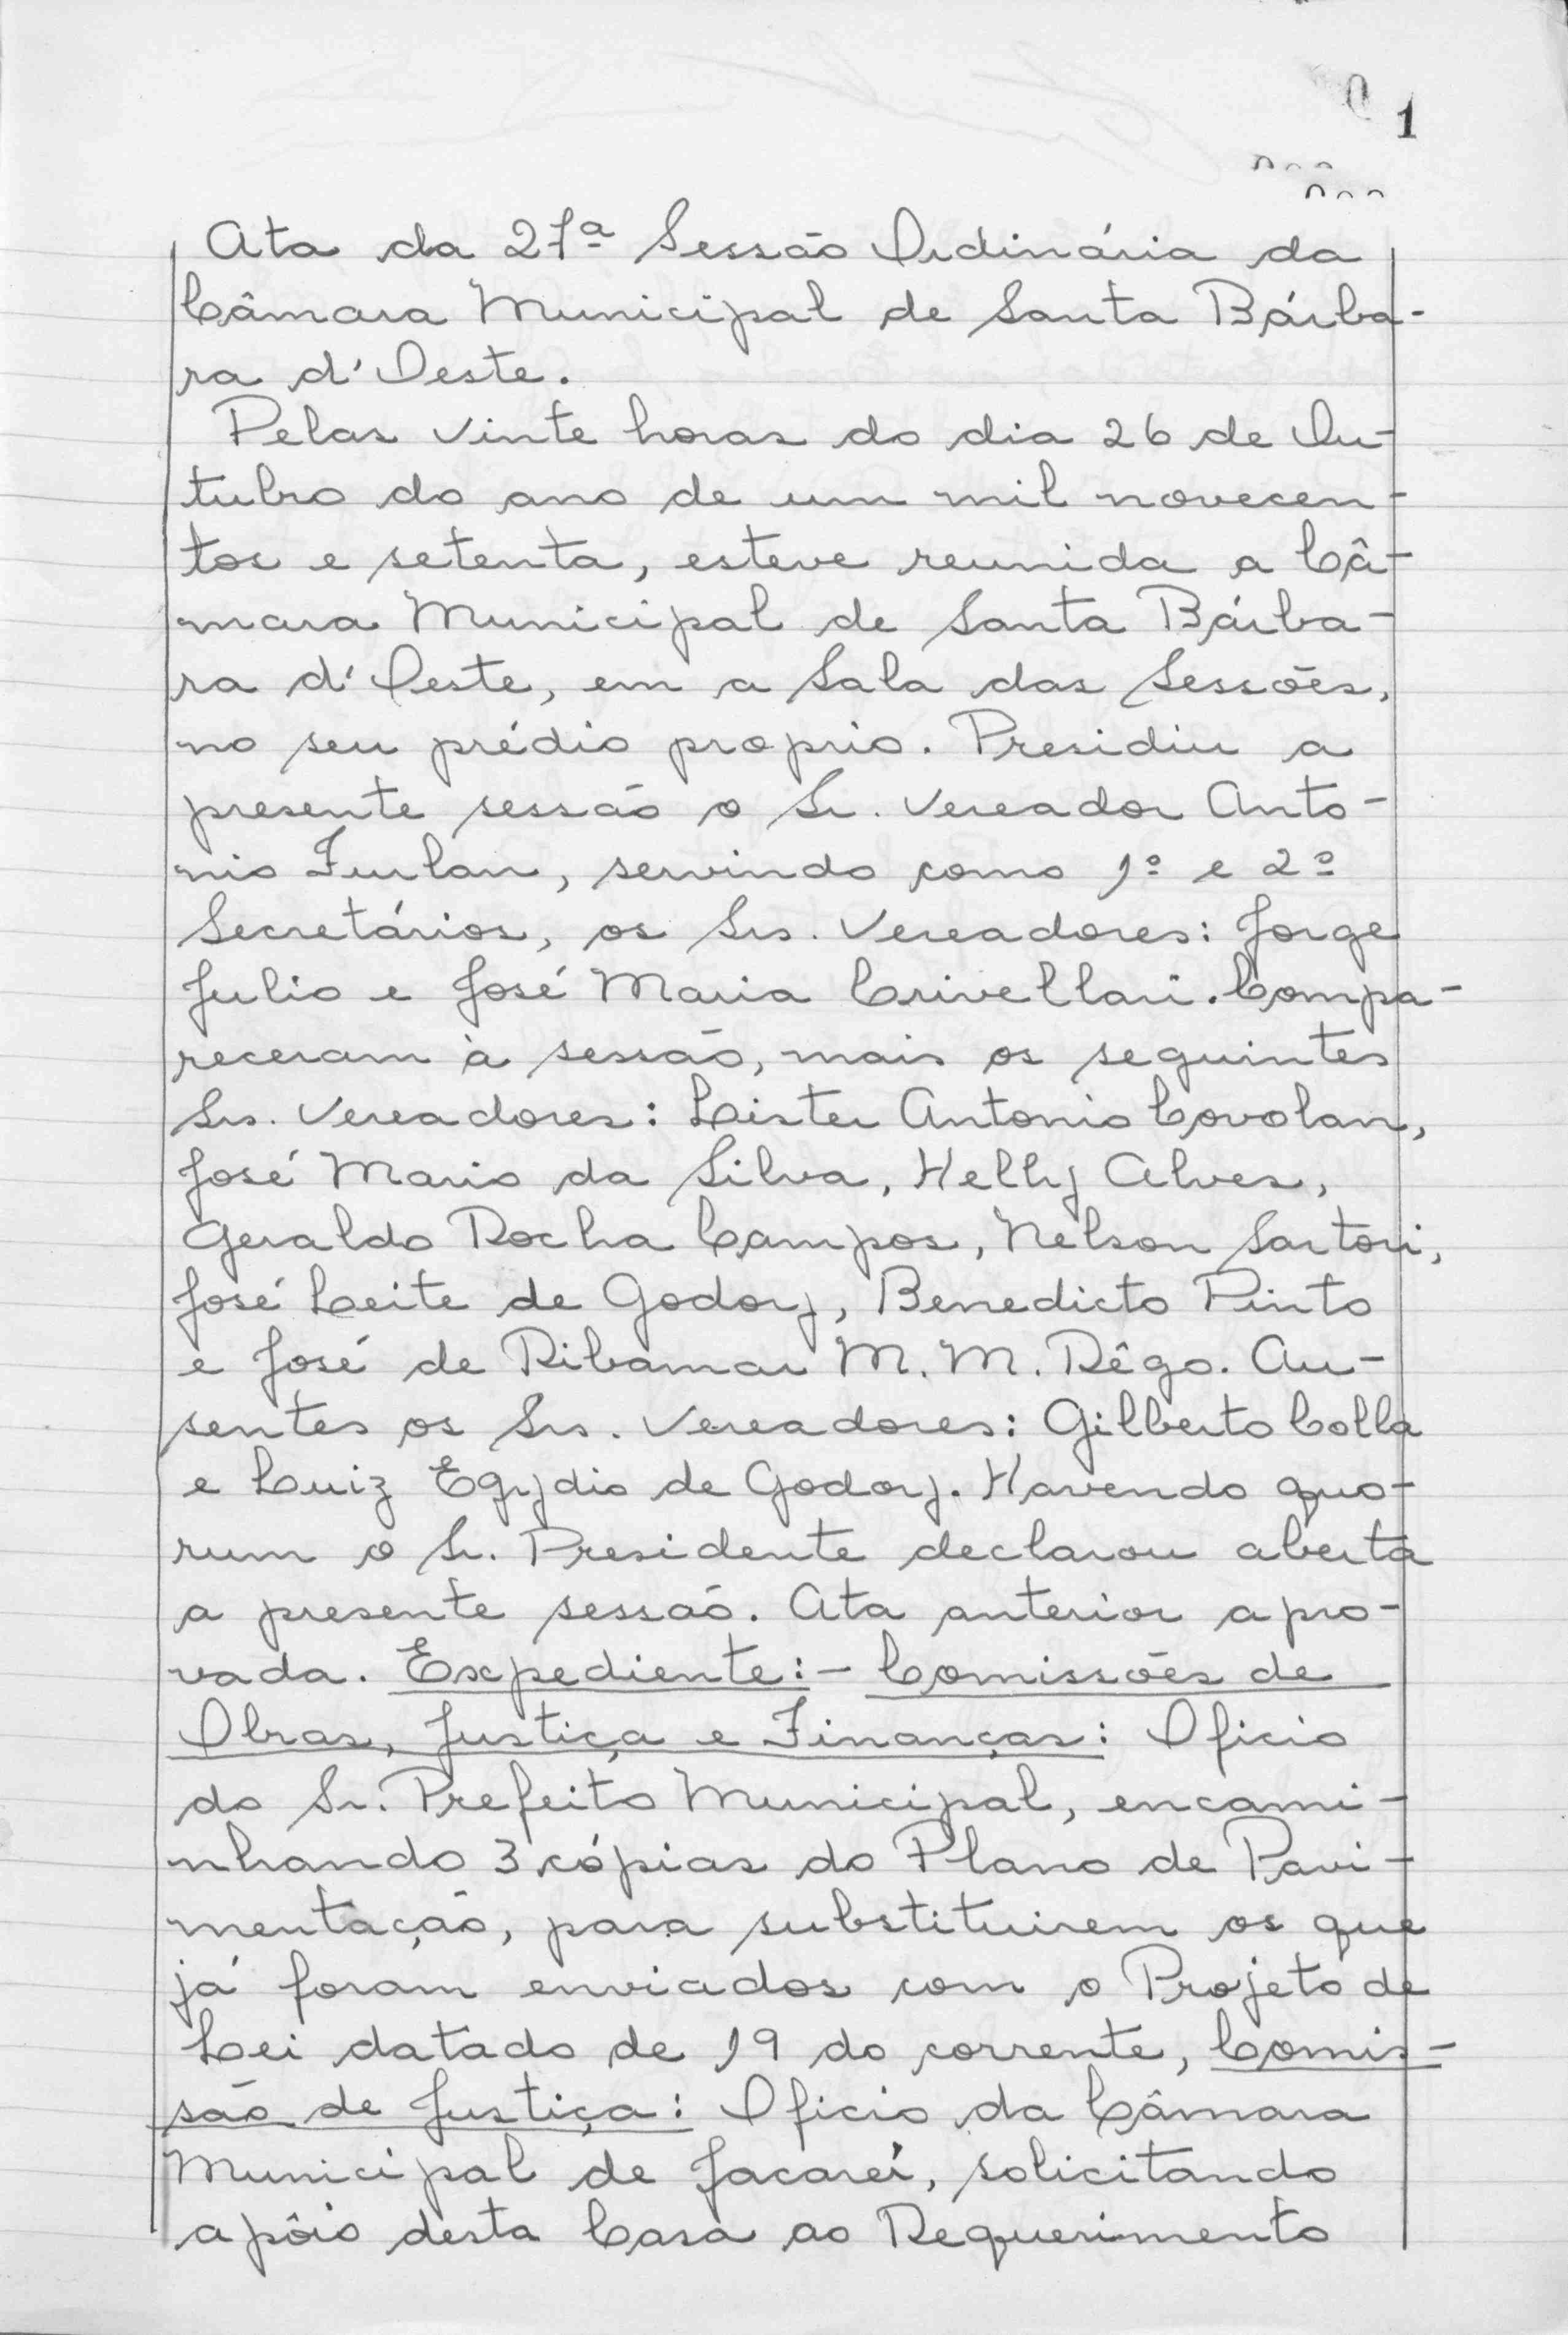 1
Ata da 27ª Sessão Ordinária da
Câmara Municipal de Santa Bárba-
ra d'Oeste.
Pelas vinte horas do dia 26 de Ou-
tubro do ano de um mil novecen-
tos e setenta, esteve reunida a Câ-
mara Municipal de Santa Bárba-
ra d'Oeste, em a Sala das Sessões,
no seu prédio proprio. Presidiu a
presente sessão o Sr. Vereador Anto-
nio Furlan, servindo como 1º e 2º
Secretários, os Srs. Vereadores: Jorge
Julio e José Maria Crivellari. Compa-
receram à sessão, mais os seguintes
Srs. Vereadores: Lister Antonio Covolan,
José Mario da Silva, Helly Alves,
Geraldo Rocha Campos, Nelson Sartori,
José Leite de Godoy, Benedicto Pinto
e José de Ribamar M. M. Rêgo. Au-
sentes os Srs. Vereadores: Gilberto Colla
e Luiz Egydio de Godoy. Havendo quo-
rum o Sr. Presidente declarou aberta
a presente sessão. Ata anterior apro-
vada. Expediente:- Comissões de
Obras, Justiça e Finanças: Oficio
do Sr. Prefeito Municipal, encami-
nhando 3 cópias do Plano de Pavi-
mentação, para substituirem os que
já foram enviados com o Projeto de
Lei datado de 19 do corrente, Comis-
são de Justiça: Oficio da Câmara
Municipal de Jacareí, solicitando
apôio desta Casa ao Requerimento